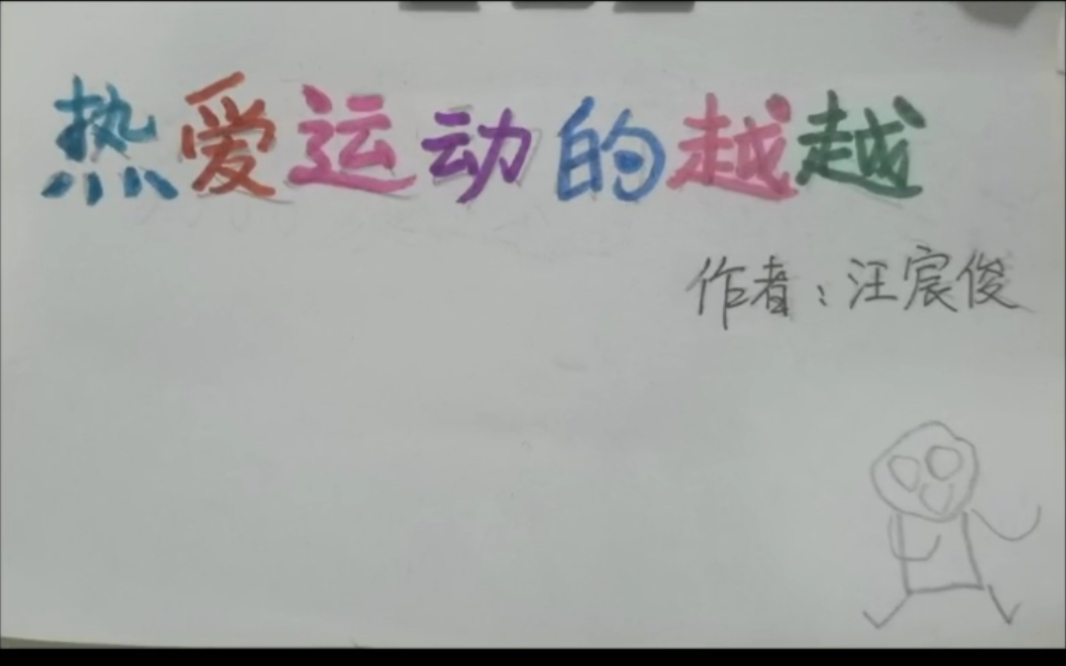 热爱运动的越越
作者：汪宸俊